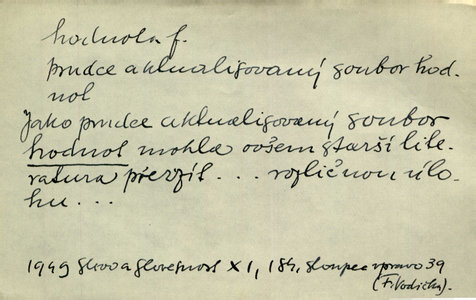 hodnota f.
prudce aktualisovaný soubor hod-
not
Jako prudce aktualisovaný soubor
hodnot mohla ovšem starší lite-
ratura převzít . . . rozličnou úlo-
hu . . .
1949 Slovo a Slovesnost XI, 184, sloupec vpravo 39
(F. Vodička).